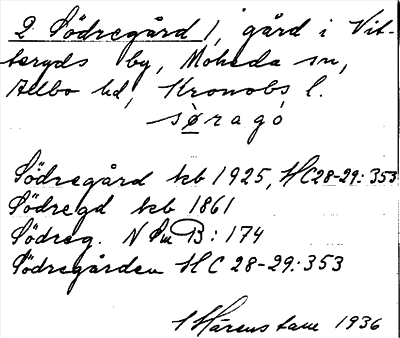 2 Södregård 1, gård i Vit-
teryds by, Moheda sn,
Allbo hd, Kronobs l.
sø̀ragó
Södregård kb 1925, HC28-29:353
Södregd kb 1861
Södreg. N Sm B: 174
Södregården HC 28-29:353
1936